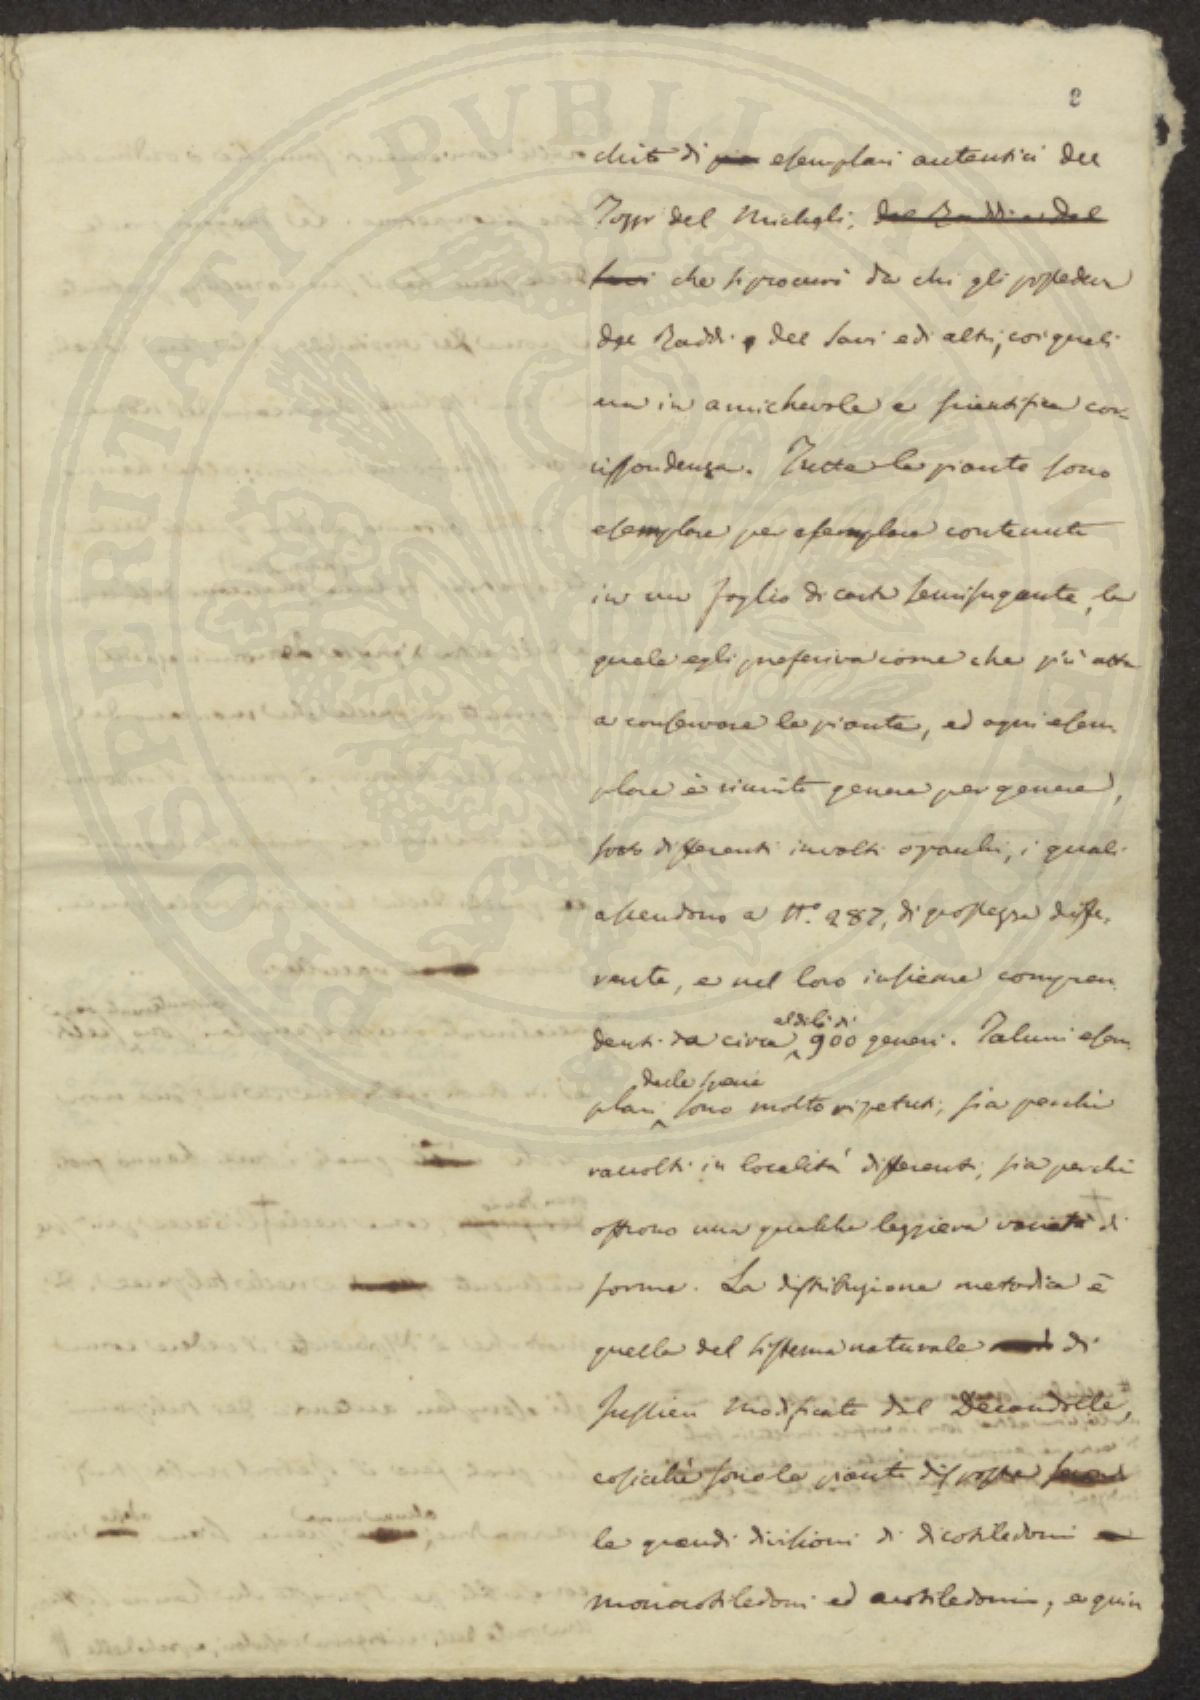 2
chite di più esemplari autentici del
Tozzi del Micheli, del Raddi e del
Savi che si procurò da chi gli possedeva
del Raddi, del Savi e di altri, coi quali
era in amichevole e scientifica cor-
rispondenza. Tutte le piante sono
esemplare per esemplare contenute
in un foglio di carta semisugante, la
quale egli preferiva come che più atta
a conservare le piante, ed ogni esem
plare è riunito genere per genere,
sotto differenti involti o pacchi, i quali
ascendono a N.º 287, di grossezza diffe-
rente, e nel loro insieme compren
denti da circa al di là di 900 generi. Taluni esem
plari delle specie sono molto ripetuti, sia perchè
raccolti in località differenti, sia perchè
offrono una qualche leggiera varietà di
forme. La distribuzione metodica è
quella del sistema naturale di
Jussieu modificato dal Decandolle,
cosicchè sono le piante disposte secondo
le grandi divisioni di dicotiledoni e
monocotiledoni ed acotiledoni, e quin
PROSPERITATI PUBLICAE AUGENDAE